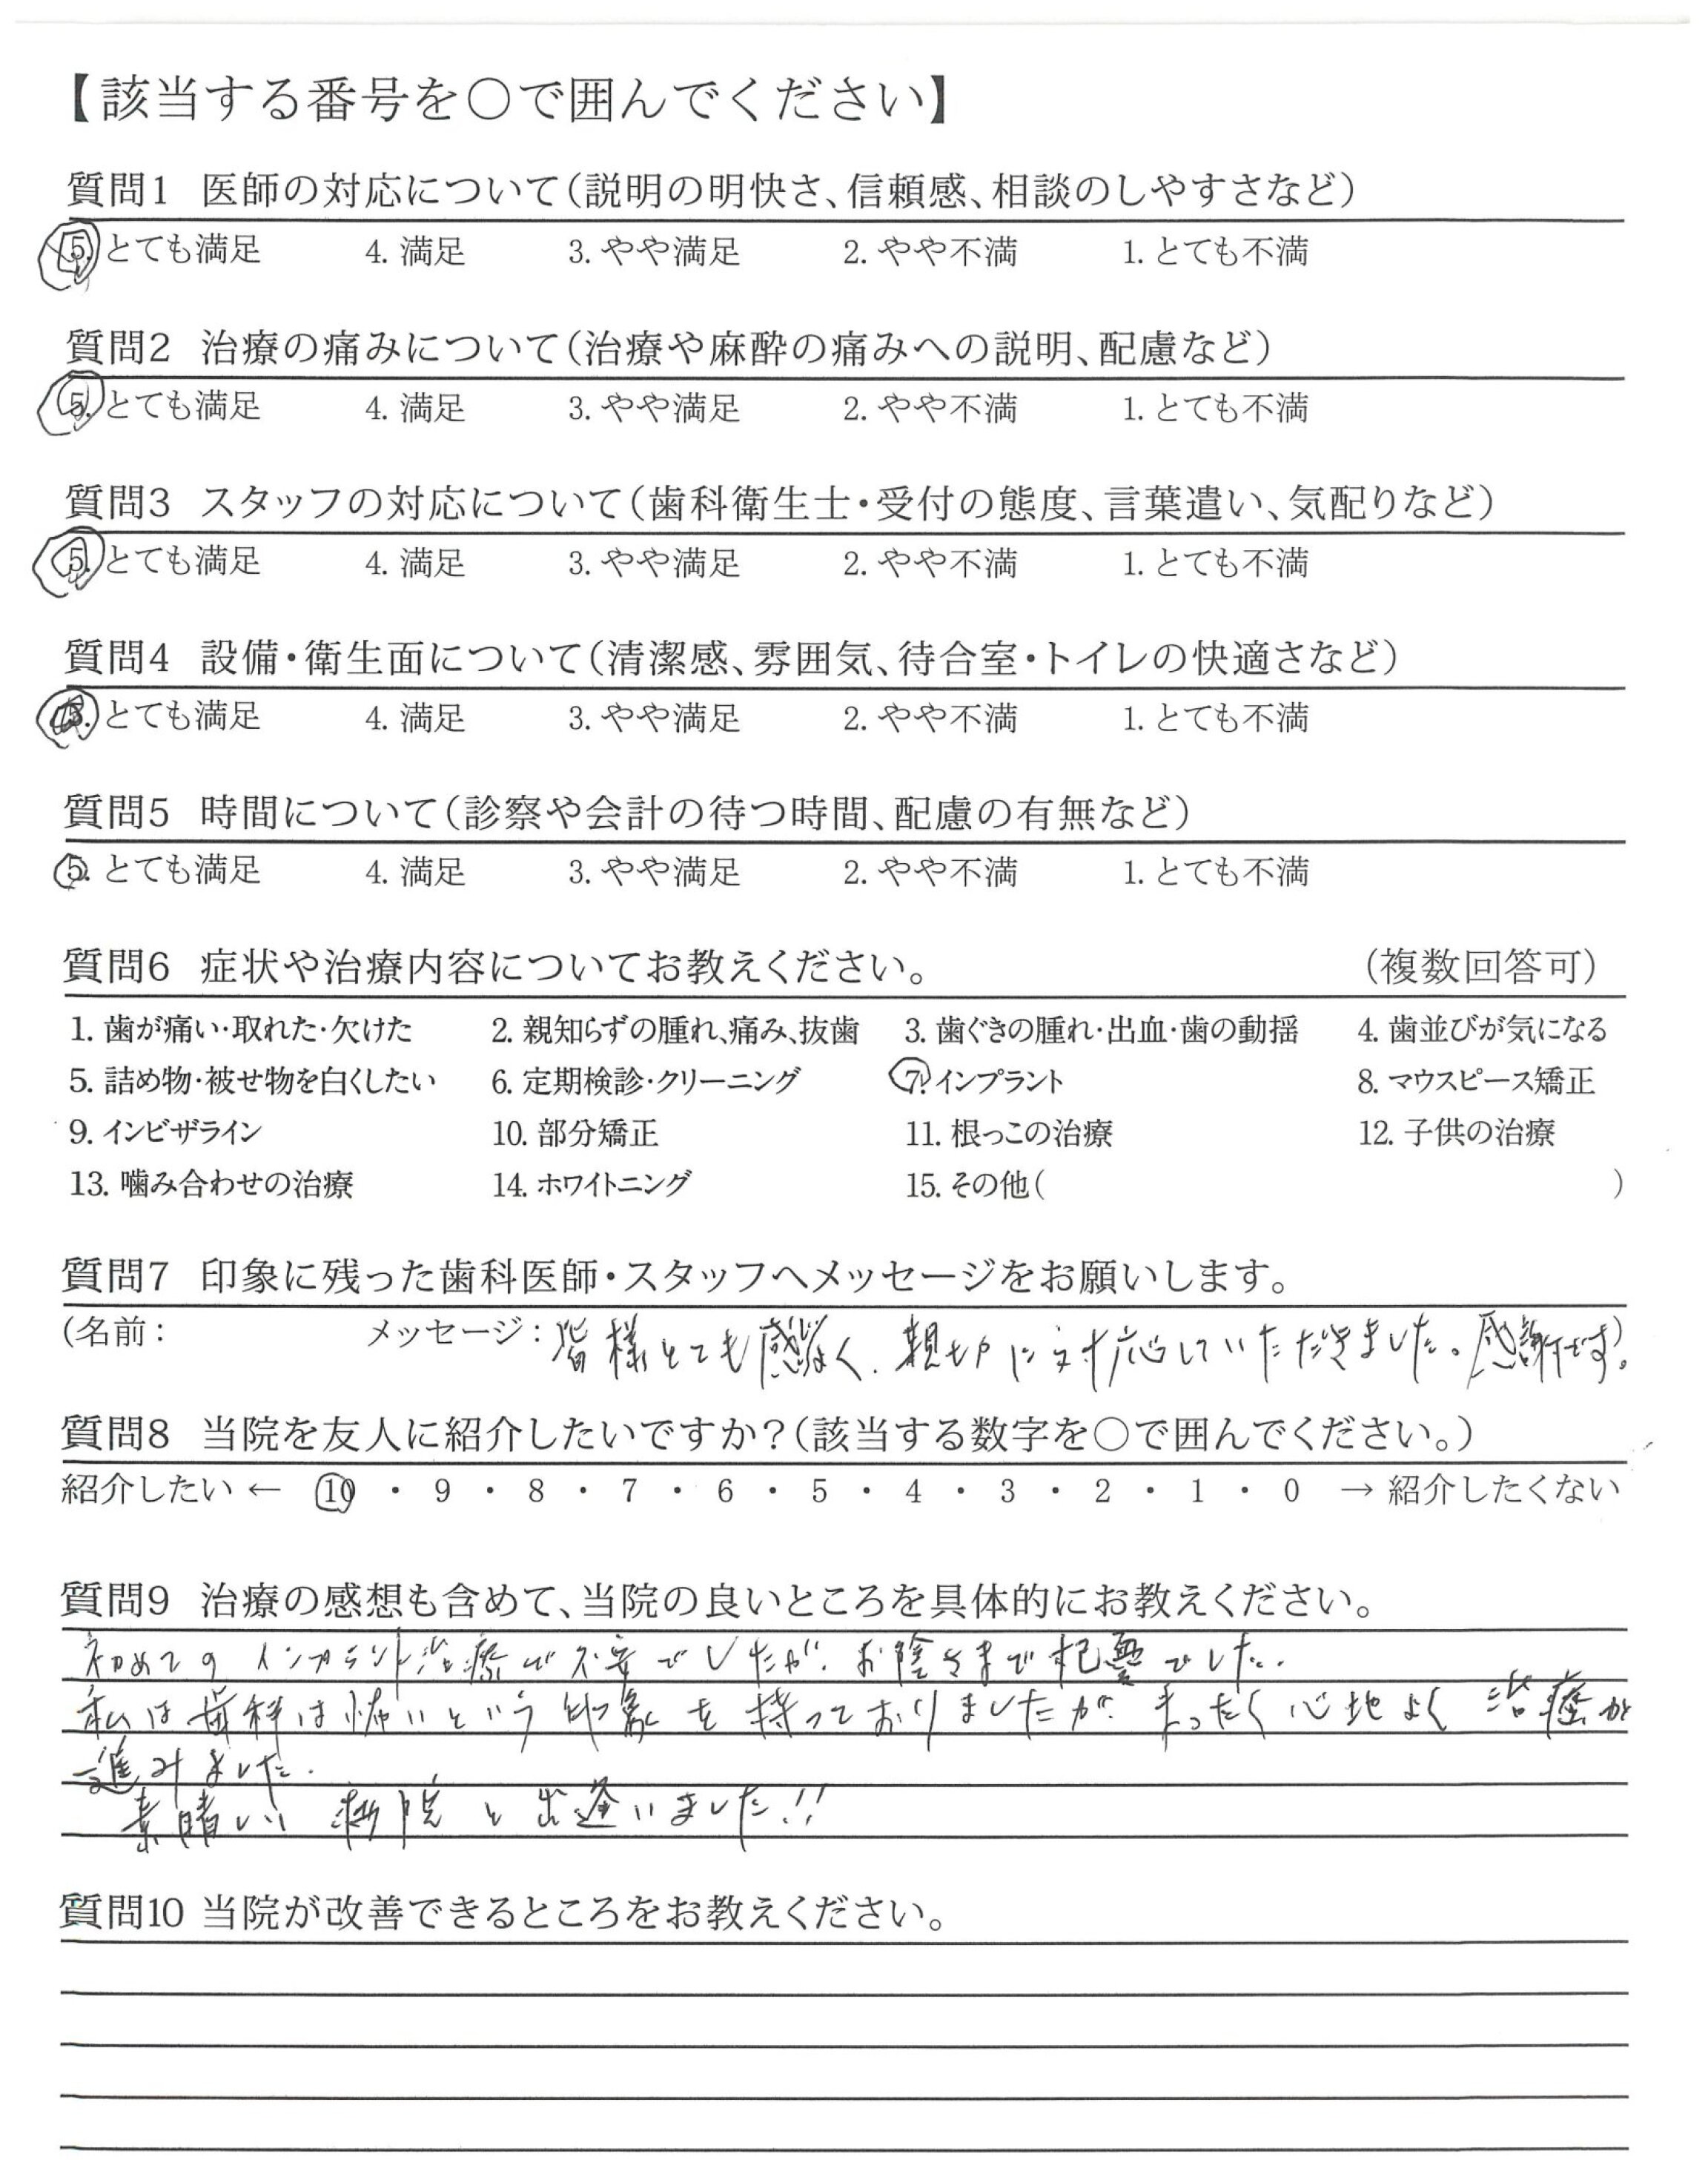 【該当する番号を○で囲んでください】
質問1 医師の対応について(説明の明快さ、信頼感、相談のしやすさなど)
5. とても満足 4. 満足 3. やや満足 2. やや不満 1. とても不満
質問2 治療の痛みについて(治療や麻酔の痛みへの説明、配慮など)
5. とても満足 4. 満足 3. やや満足 2. やや不満 1. とても不満
質問3 スタッフの対応について(歯科衛生士・受付の態度、言葉遣い、気配りなど)
5. とても満足 4. 満足 3. やや満足 2. やや不満 1. とても不満
質問4 設備・衛生面について(清潔感、雰囲気、待合室・トイレの快適さなど)
5. とても満足 4. 満足 3. やや満足 2. やや不満 1. とても不満
質問5 時間について(診察や会計の待つ時間、配慮の有無など)
5. とても満足 4. 満足 3. やや満足 2. やや不満 1. とても不満
質問6 症状や治療内容についてお教えください。 (複数回答可)
1. 歯が痛い・取れた・欠けた 2. 親知らずの腫れ、痛み、抜歯 3. 歯ぐきの腫れ・出血・歯の動揺 4. 歯並びが気になる
5. 詰め物・被せ物を白くしたい 6. 定期検診・クリーニング 7. インプラント 8. マウスピース矯正
9. インビザライン 10. 部分矯正 11. 根っこの治療 12. 子供の治療
13. 噛み合わせの治療 14. ホワイトニング 15. その他( )
質問7 印象に残った歯科医師・スタッフへメッセージをお願いします。
(名前: メッセージ: 皆様とても感じよく、親切に対応していただきました。感謝です)。
質問8 当院を友人に紹介したいですか?(該当する数字を○で囲んでください。)
紹介したい ← 10 ・ 9 ・ 8 ・ 7 ・ 6 ・ 5 ・ 4 ・ 3 ・ 2 ・ 1 ・ 0 → 紹介したくない
質問9 治療の感想も含めて、当院の良いところを具体的にお教えください。
初めてのインプラント治療で不安でしたが、お陰さまで杞憂でした。
私は歯科は怖いという印象を持っておりましたが、まったく心地よく治療が
進みました。
素晴しい 病院と出逢いました!!
質問10 当院が改善できるところをお教えください。